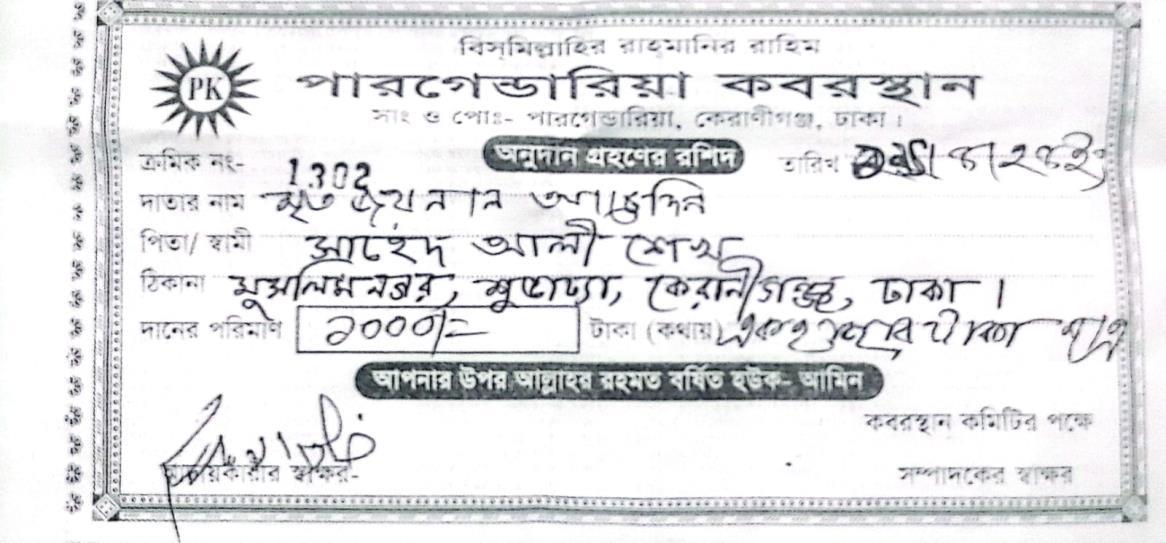 বিস্‌মিল্লাহির রাহমানির রাহিম
PK
পারগেন্ডারিয়া কবরস্থান
সাং ও পোঃ- পারগেন্ডারিয়া, কেরাণীগঞ্জ, ঢাকা।
অনুদান গ্রহণের রশিদ
ক্রমিক নং- 1302 তারিখ
দাতার নাম মৃত জয়নাল আবেদিন
পিতা/ স্বামী সাহেদ আলী শেখ
ঠিকানা মুসলিমনগর, শুভাঢ্যা, কেরানীগঞ্জ, ঢাকা।
দানের পরিমাণ ১০০০/= টাকা (কথায়) এক হাজার টাকা মাত্র
আপনার উপর আল্লাহর রহমত বর্ষিত হউক- আমিন
কবরস্থান কমিটির পক্ষে
আদায়কারীর স্বাক্ষর- সম্পাদকের স্বাক্ষর